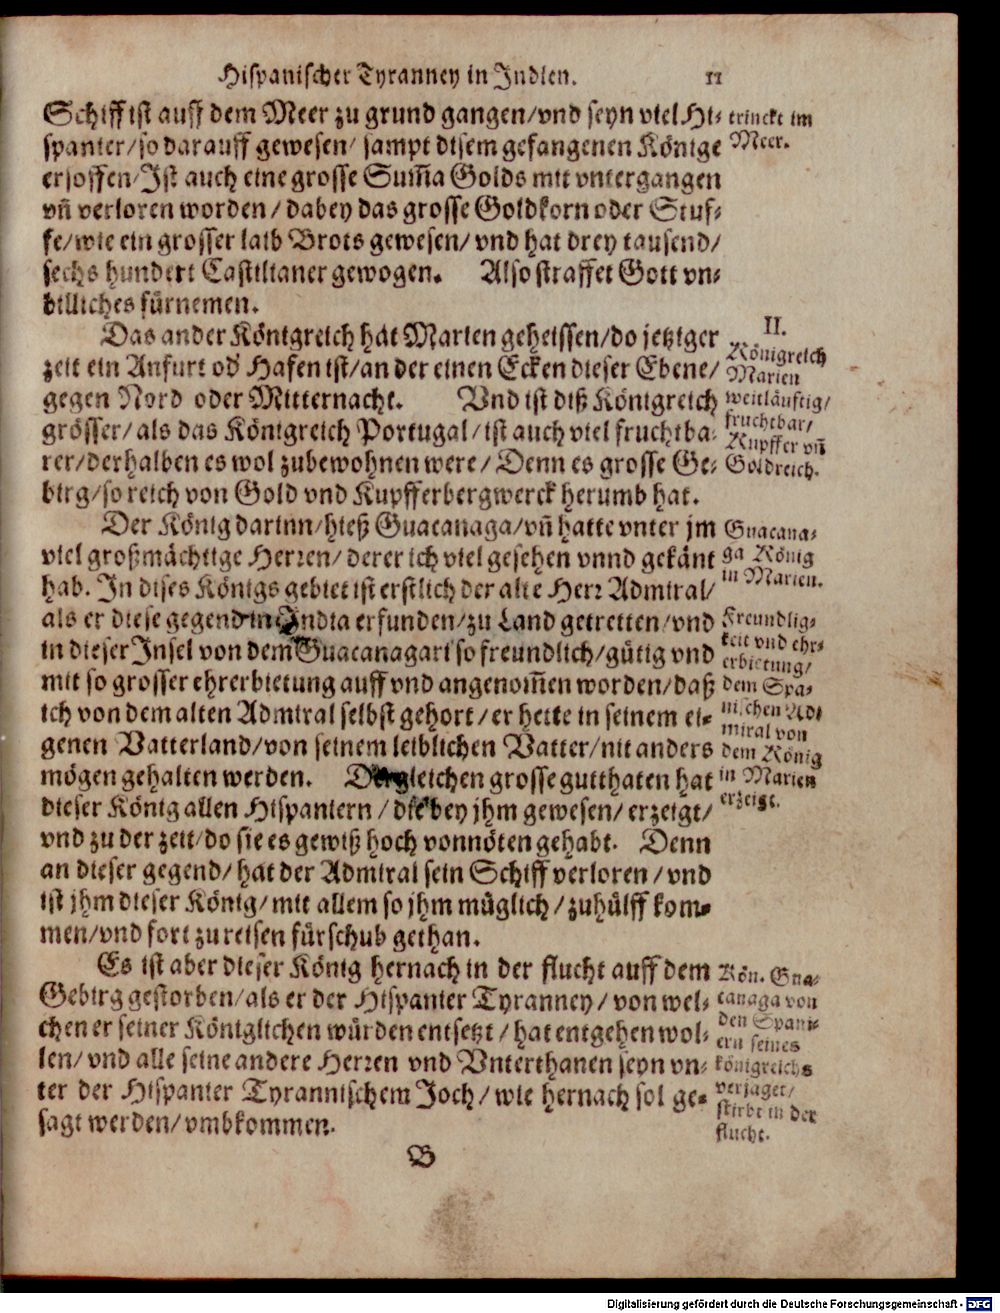 Hispanischer Tyranney in Indien. 11
Schiff ist auff dem Meer zu grund gangen/vnd seyn viel Hi-
spanier/so darauff gewesen/ sampt disem gefangenen Könige
ersoffen/Ist auch eine grosse Sum̃a Golds mit vntergangen
vñ verloren worden/dabey das grosse Goldkorn oder Stuf-
fe/wie ein grosser laib Brots gewesen/vnd hat drey tausend/
sechs hundert Castilianer gewogen. Also straffet Gott vn-
billiches fürnemen.
trinckt im
Meer.
Das ander Königreich hat Marien geheissen/do jetziger
zeit ein Anfurt od' Hafen ist/an der einen Ecken dieser Ebene/
gegen Nord oder Mitternacht. Vnd ist diß Königreich
grösser/als das Königreich Portugal/ist auch viel fruchtba-
rer/derhalben es wol zubewohnen were/Denn es grosse Ge-
birg/so reich von Gold vnd Kupfferbergwerck herumb hat.
II.
Königreich
Marien
weitläuftig/
fruchtbar/
Kupffer vñ
Goldreich.
Der König darinn/hieß Guacanaga/vñ hatte vnter jm
viel großmächtige Herren/derer ich viel gesehen vnnd gekänt
hab. In dises Königs gebiet ist erstlich der alte Herr Admiral/
als er diese gegend in India erfunden/zu Land getretten/vnd
in dieser Insel von dem Guacanagari so freundlich/gütig vnd
mit so grosser ehrerbietung auff vnd angenom̃en worden/daß
ich von dem alten Admiral selbst gehort/er hette in seinem ei-
genen Vatterland/von seinem leiblichen Vatter/nit anders
mögen gehalten werden. Dergleichen grosse gutthaten hat
dieser König allen Hispaniern/die bey jhm gewesen/erzeigt/
vnd zu der zeit/do sie es gewiß hoch vonnöten gehabt. Denn
an dieser gegend/hat der Admiral sein Schiff verloren/vnd
ist jhm dieser König/mit allem so jhm müglich/zuhülff kom-
men/vnd fort zureisen fürschub gethan.
Guacana-
ga König
in Marien.
Freundlig-
keit vnd ehr-
erbietung/
dem Spa-
nischen Ad-
miral von
dem König
in Marien
erzeigt.
Es ist aber dieser König hernach in der flucht auff dem
Gebirg gestorben/als er der Hispanier Tyranney/von wel-
chen er seiner Königlichen würden entsetzt/hat entgehen wol-
len/vnd alle seine andere Herren vnd Vnterthanen seyn vn-
ter der Hispanier Tyrannischem Joch/wie hernach sol ge-
sagt werden/vmbkommen.
Kön. Gua-
canaga von
den Spani-
ern seines
königreichs
verjaget/
stirbt in der
flucht.
B
Digitalisierung gefördert durch die Deutsche Forschungsgemeinschaft - DFG